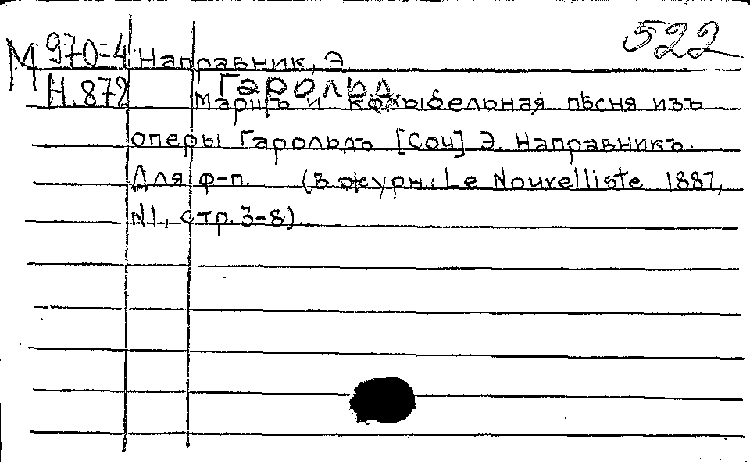 522
М 970-4 Направник, Э
Н.872 Гарольд.
Маршъ и колыбельная пѣсня изъ
оперы Гарольдъ [Соч] Э. Направникъ.
Для ф-п. (в журн.: Le Nouvelliste 1887,
N1, стр. 3-8).